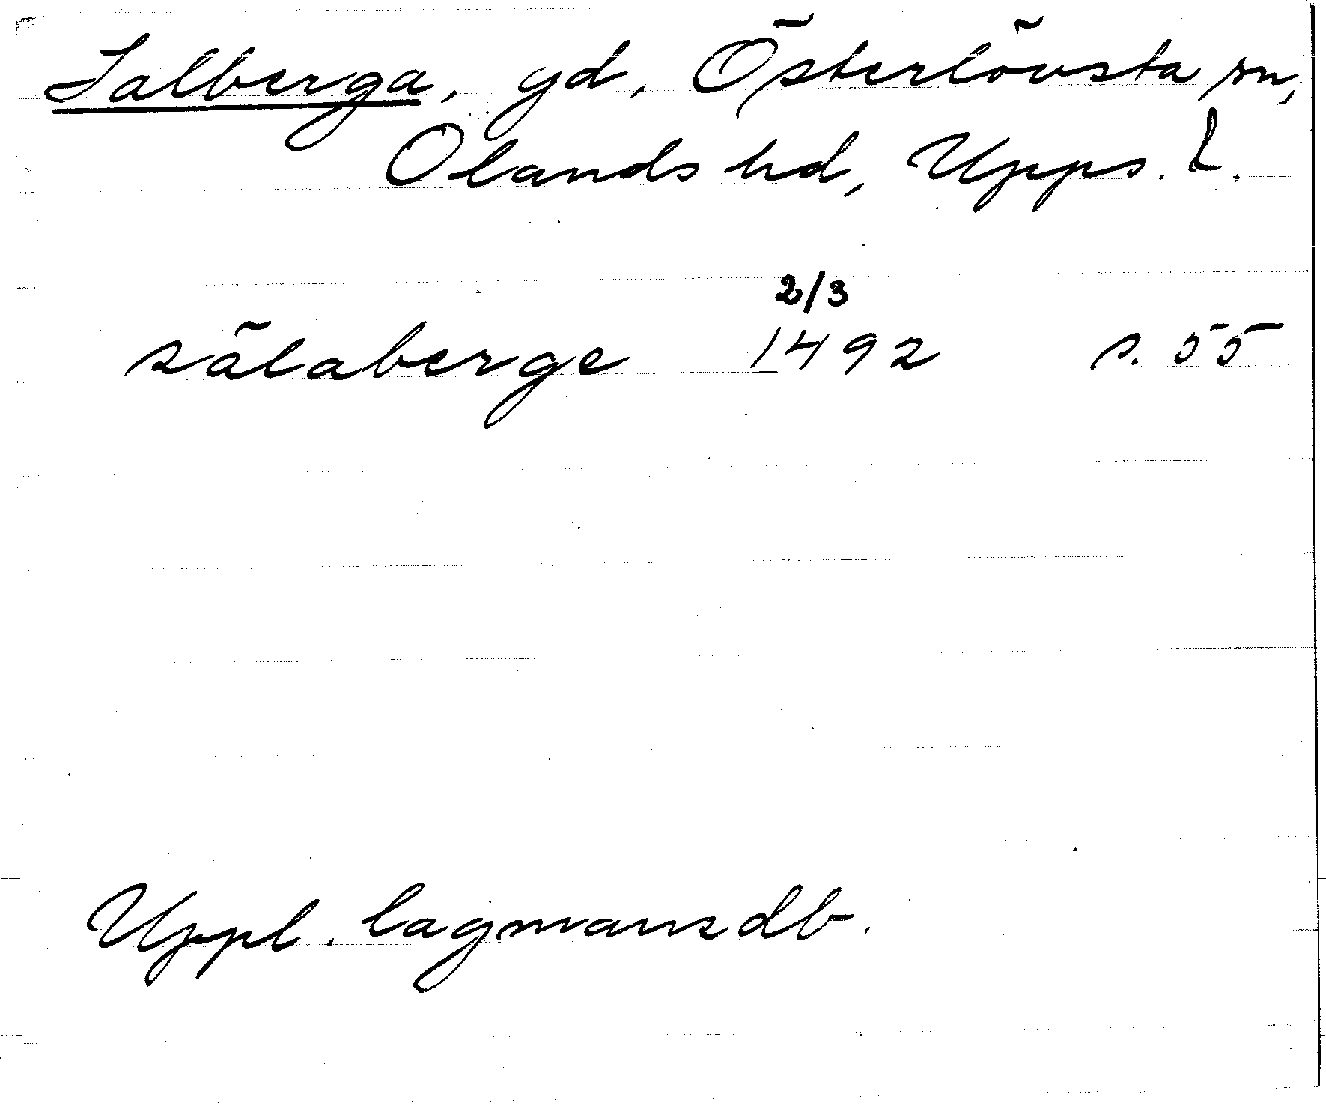 Salberga, gd, Österlövsta sn,
Olands hd, Upps. l.
2/3
sälaberge 1492 s. 55
Uppl. lagmansdb.